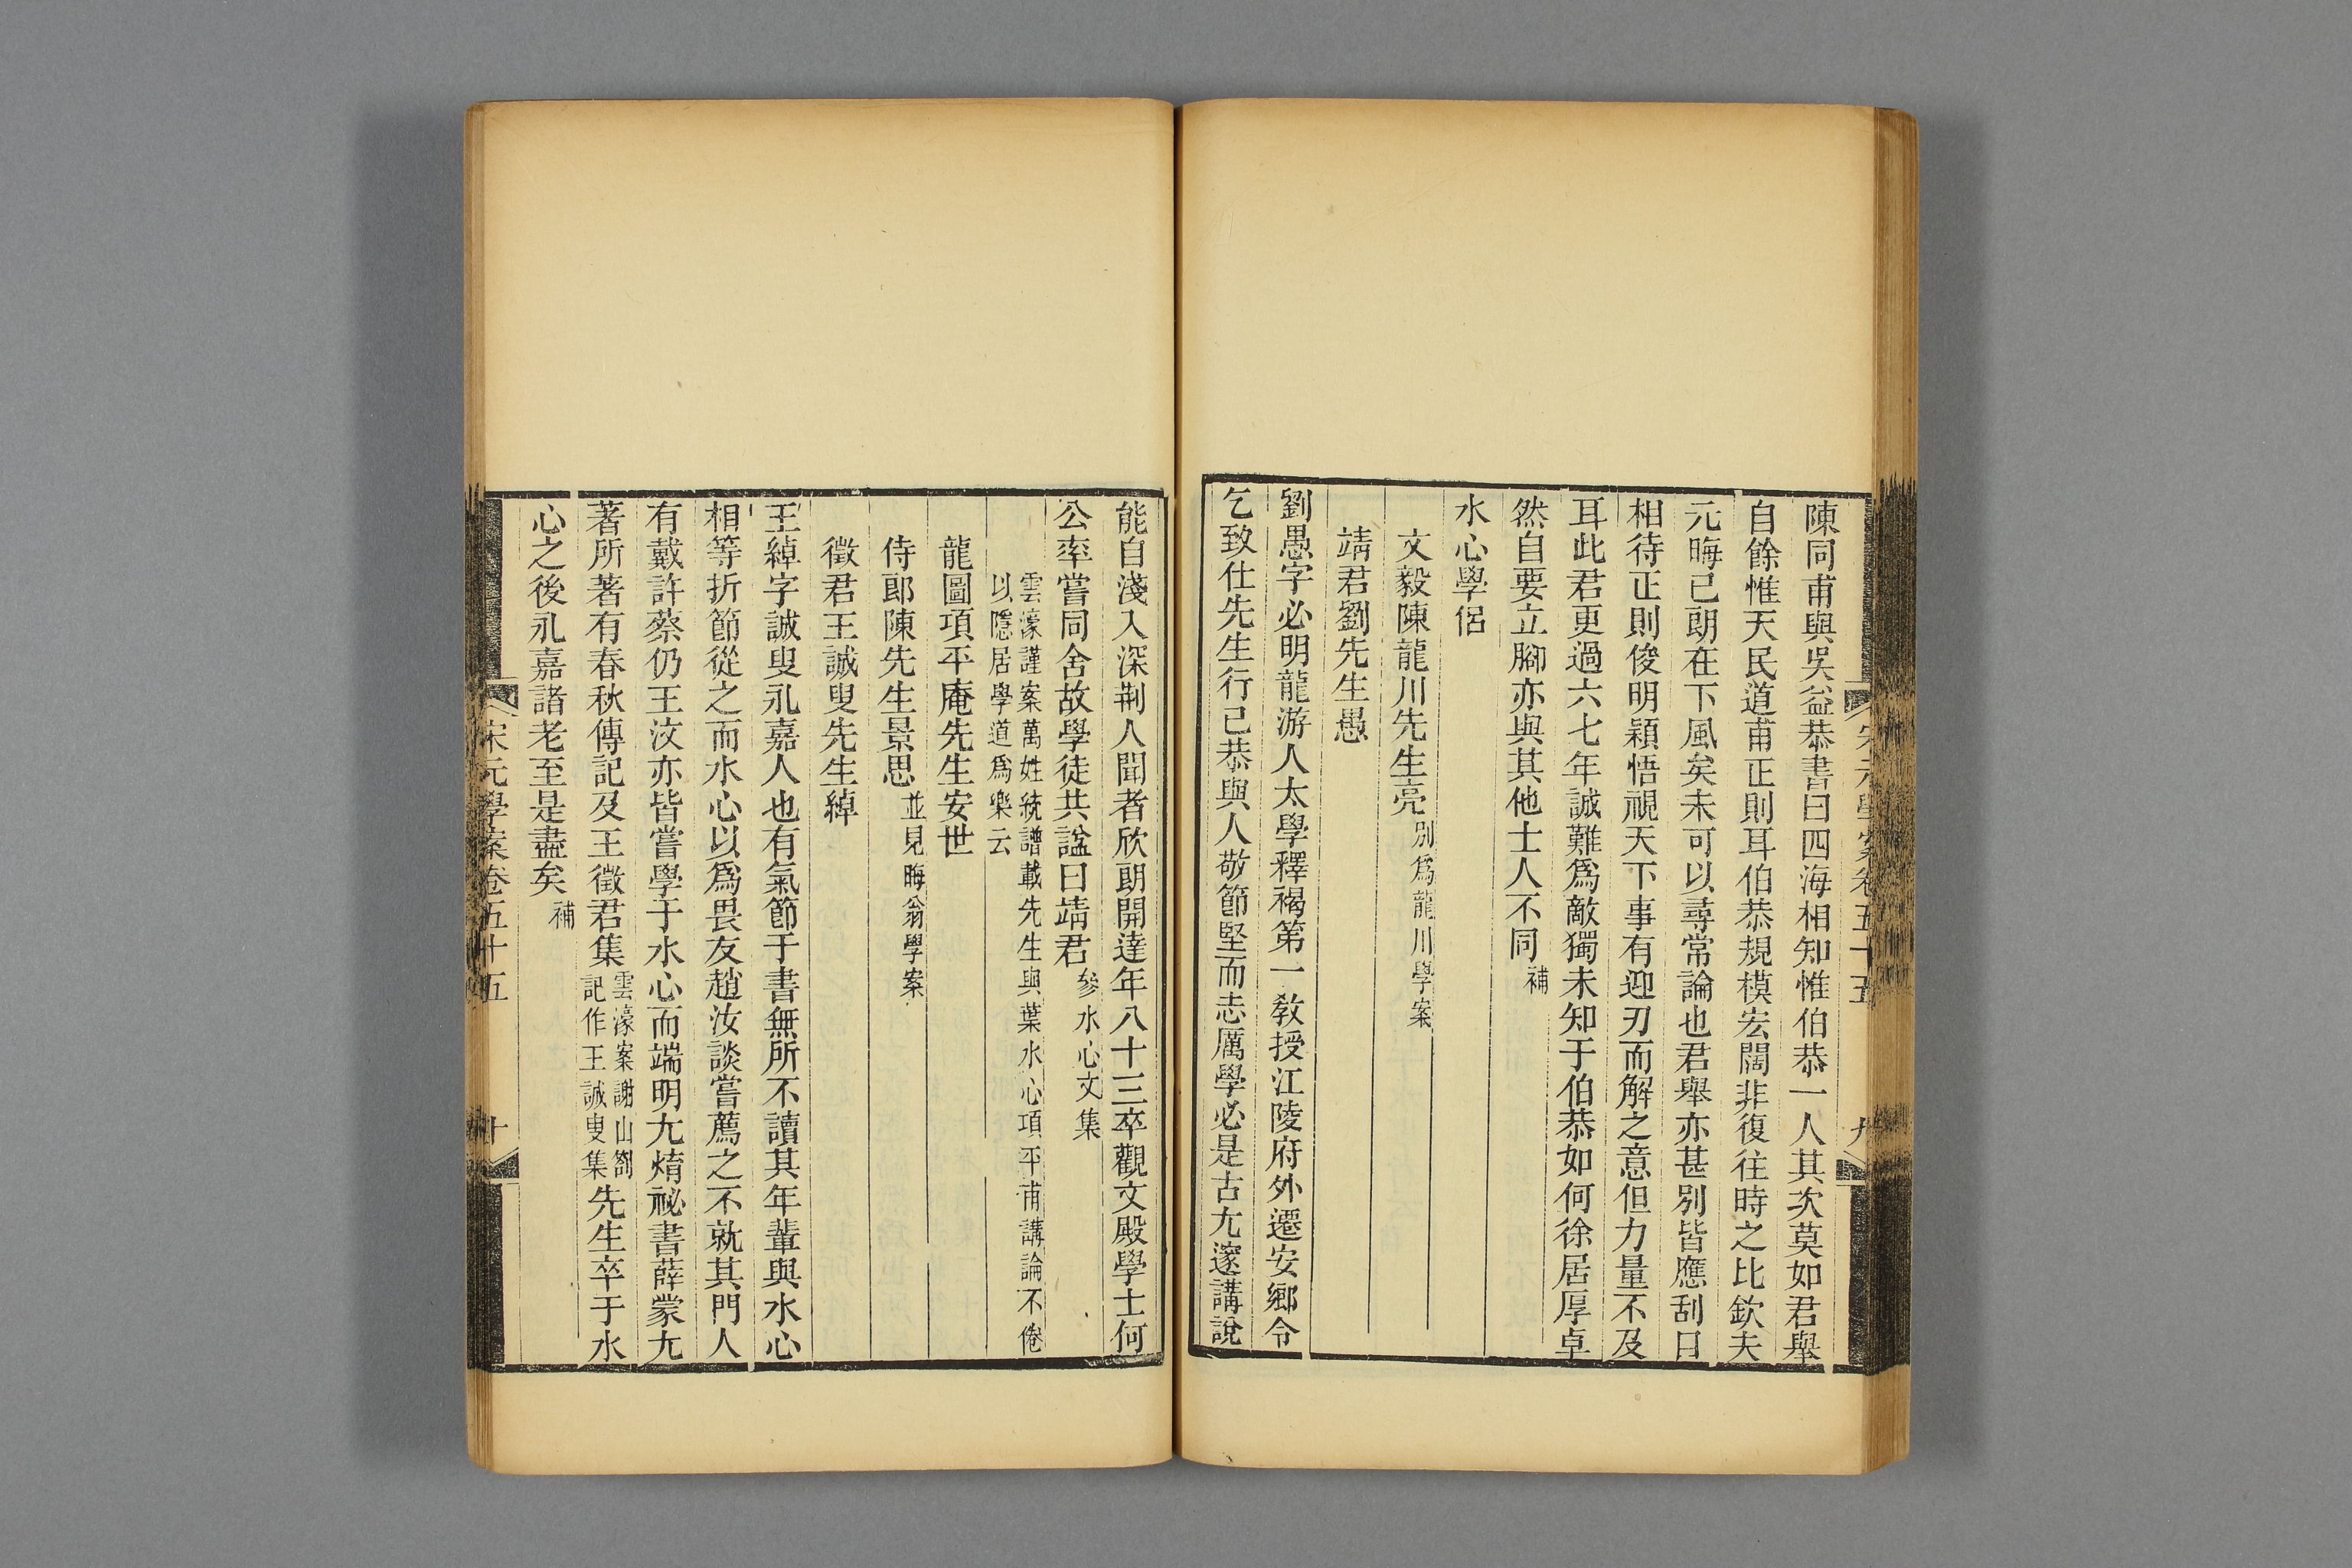 宋元學案卷五十五
九
陳同甫與吳益恭書曰四海相知惟伯恭一人其次莫如君舉
自餘惟天民道甫正則耳伯恭規模宏闊非復往時之比欽夫
元晦已朗在下風矣未可以尋常論也君舉亦甚別皆應刮目
相待正則俊明穎悟視天下事有迎刃而解之意但力量不及
耳此君更過六七年誠難爲敵獨未知于伯恭如何徐居厚卓
然自要立腳亦與其他士人不同補
水心學侶
文毅陳龍川先生亮別爲龍川學案
靖君劉先生愚
劉愚字必明龍游人太學釋褐第一敎授江陵府外遷安鄉令
乞致仕先生行已恭與人敬節堅而志厲學必是古尢邃講說
能自淺入深荆人聞者欣朗開達年八十三卒觀文殿學士何
公率嘗同舍故學徒共諡曰靖君參水心文集
雲濠謹案萬姓統譜載先生與葉水心項平甫講論不倦
以隱居學道爲樂云
龍圖項平庵先生安世
侍郞陳先生景思並見晦翁學案
徵君王誠叟先生綽
王綽字誠叟永嘉人也有氣節于書無所不讀其年輩與水心
相等折節從之而水心以爲畏友趙汝談嘗薦之不就其門人
有戴許蔡仍王汶亦皆嘗學于水心而端明尢焴祕書薛蒙尢
著所著有春秋傳記及王徵君集雲濠案謝山劄記作王誠叟集先生卒于水
心之後永嘉諸老至是盡矣補
宋元學案卷五十五
十